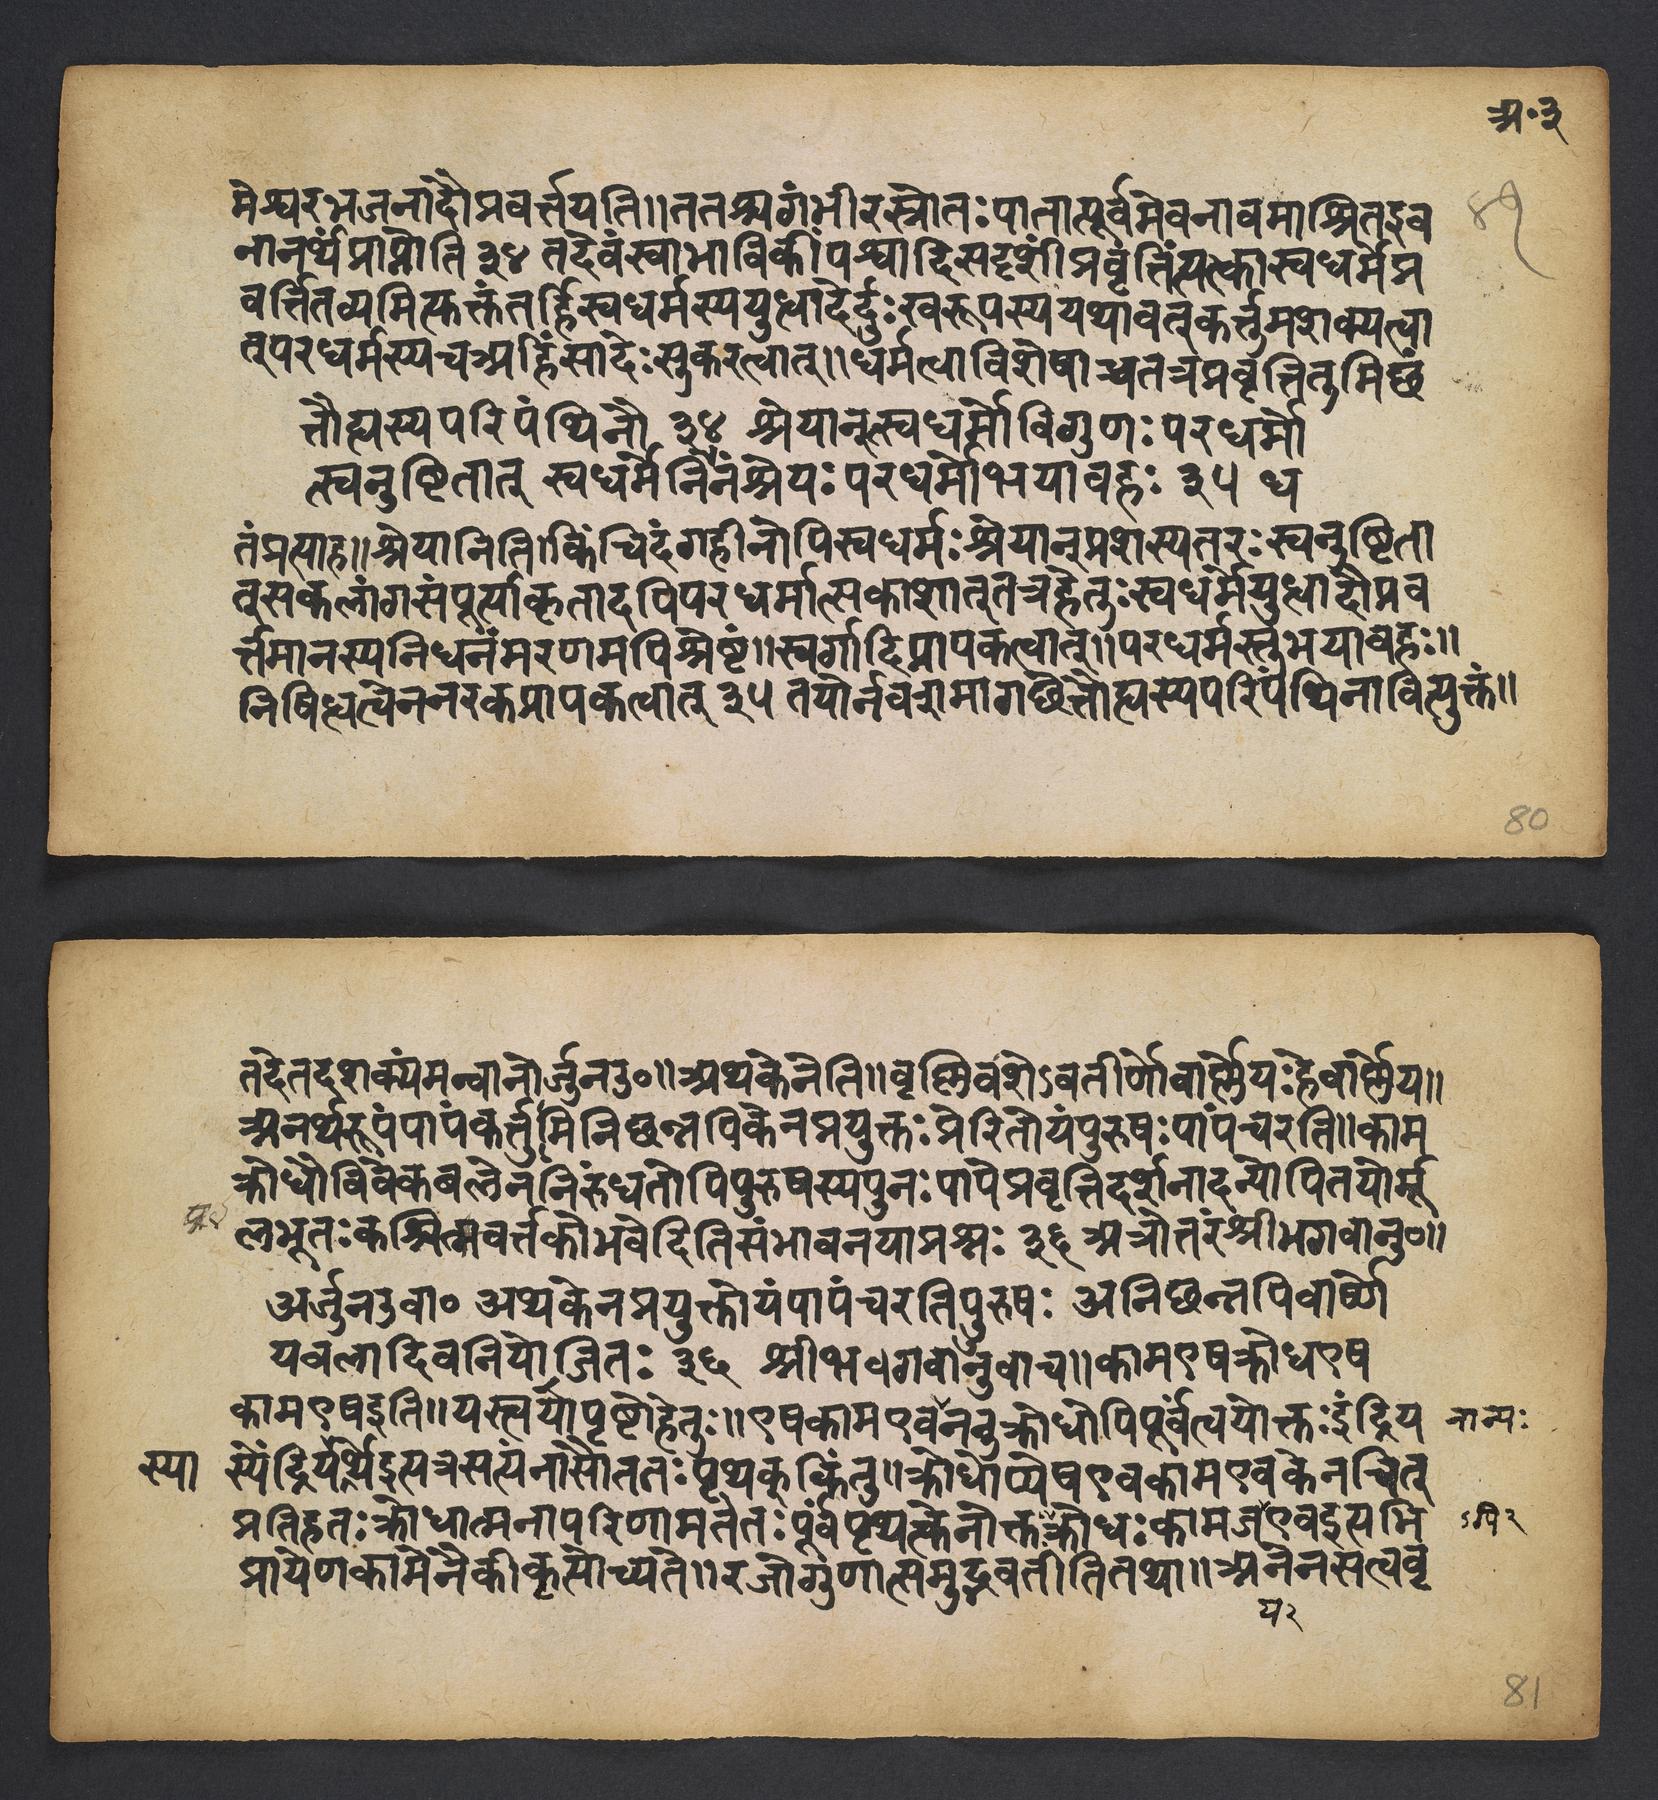 अ॰३
मेश्वरभजनादौप्रवर्त्तयति॥ततश्चगंभीरस्त्रोतःपातात्पूर्वमेवनावमाश्रितइव
नानर्थंप्राप्नोति ३४ तदेवंस्वाभाविकींपश्वादिसदृशींप्रवृत्तिंत्यत्क्वास्वधर्मेप्र
वर्त्तितव्यमित्युक्तंतर्हिस्वधर्मस्ययुध्धादेर्दुःखरूपस्ययथावत्कर्त्तुमशक्यत्वा
त्परधर्मस्यचअहिंसादेःसुकरत्वात्॥धर्मत्वाविशेषाच्चतत्रप्रवृत्तितुमिछं
तौह्यस्यपरिपंथिनौ ३४ श्रेयान्स्वधर्मोविगुणःपरधर्मो
त्स्वनुष्टितात् स्वधर्मेनिनंश्रेयःपरधर्मोभयावहः ३५ ध
तंप्रत्याह॥श्रेयानिति।किंचिदंगहीनोपिस्वधर्मःश्रेयान्प्रशस्यतरःस्वनुष्टिता
त्सकलांगसंपूर्त्याकृतादपिपरधर्मात्सकाशात्तत्रहेतुःस्वधर्मेयुध्धादौप्रव
र्त्तमानस्यनिधनंमरणमपिश्रेष्टं॥स्वर्गादिप्रापकत्वात्॥परधर्मस्तुभयावहः॥
निषिध्धत्वेननरकप्रापकत्वात् ३५ तयोर्नवशमागछेत्तौह्यस्यपरिपंथिनावित्युक्तं॥
80
तदेतदशक्यंमन्वानोर्जुनउ०॥अथकेनेति॥वृष्णिवंशेऽवतीर्णोवार्ष्णेयःहेवार्ष्णेय॥
अनर्थरूपंपापंकर्त्तुमिनिछन्नपिकेनप्रयुक्तःप्रेरितोयंपुरुषःपापंचरति॥काम
क्रोधौविवेकबलेननिरुंधतोपिपुरुषस्यपुनःपापेप्रवृत्तिदर्शनादन्योपितयोर्मू
लभूतःकश्चित्प्रवर्त्तकोभवेदितिसंभावनयाप्रश्नः ३६ अत्रोतरंश्रीभगवानु०॥
अर्जुनउवा० अथकेनप्रयुक्तोयंपापंचरतिपुरुषः अनिछन्नपिवार्ष्णे
यबलादिवनियोजितः ३६ श्रीभगवानुवाच॥कामएषक्रोधएष
कामएषइति॥यस्त्वयापृष्टोहेतुः॥एषकामएवननुक्रोधोपिपूर्वंत्वयोक्तःइंद्रिय
नान्यः
स्या
स्येंद्रियेर्थेइत्यत्रसत्यंनासौततःपृथक्किंतु॥क्रोधोप्येषएवकामएवकेनचित्
प्रतिहतःक्रोधात्मनापरिणामतेततःपूर्वंपृथत्केनोक्तःक्रोधःकामजएवइत्यभि
ऽपि२
प्रायेणकामेनैकीकृत्योच्यते॥रजोगुणात्समुद्भवतीतितथा॥अनेनसत्ववृ
81